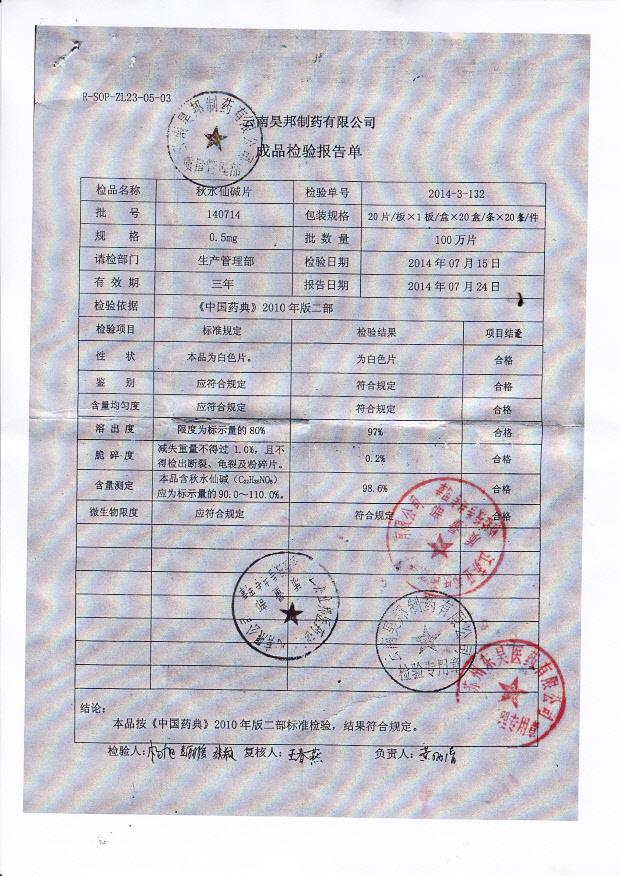 R-SOP-ZL23-05-03
云南昊邦制药有限公司
成品检验报告单
检品名称 秋水仙碱片 检验单号 2014-3-132
批 号 140714 包装规格 20片/板×1板/盒×20盒/条×20条/件
规 格 0.5mg 批 数 量 100万片
请检部门 生产管理部 检验日期 2014年07月15日
有 效 期 三年 报告日期 2014年07月24日
检验依据 《中国药典》2010年版二部
检验项目 标准规定 检验结果 项目结论
性 状 本品为白色片。 为白色片 合格
鉴 别 应符合规定 符合规定 合格
含量均匀度 应符合规定 符合规定 合格
溶 出 度 限度为标示量的80% 97% 合格
脆 碎 度 减失重量不得过1.0%，且不得检出断裂、龟裂及粉碎片。 0.2% 合格
含量测定 本品含秋水仙碱（C₂₂H₂₅NO₆）应为标示量的90.0～110.0%。 98.6% 合格
微生物限度 应符合规定 符合规定 合格
云南昊邦制药有限公司
质量管理部
有限公司
云南昊邦制药有限公司
检验专用章
苏州东吴医药有限公司
结论：
本品按《中国药典》2010年版二部标准检验，结果符合规定。
检验人： 复核人：王春燕 负责人：